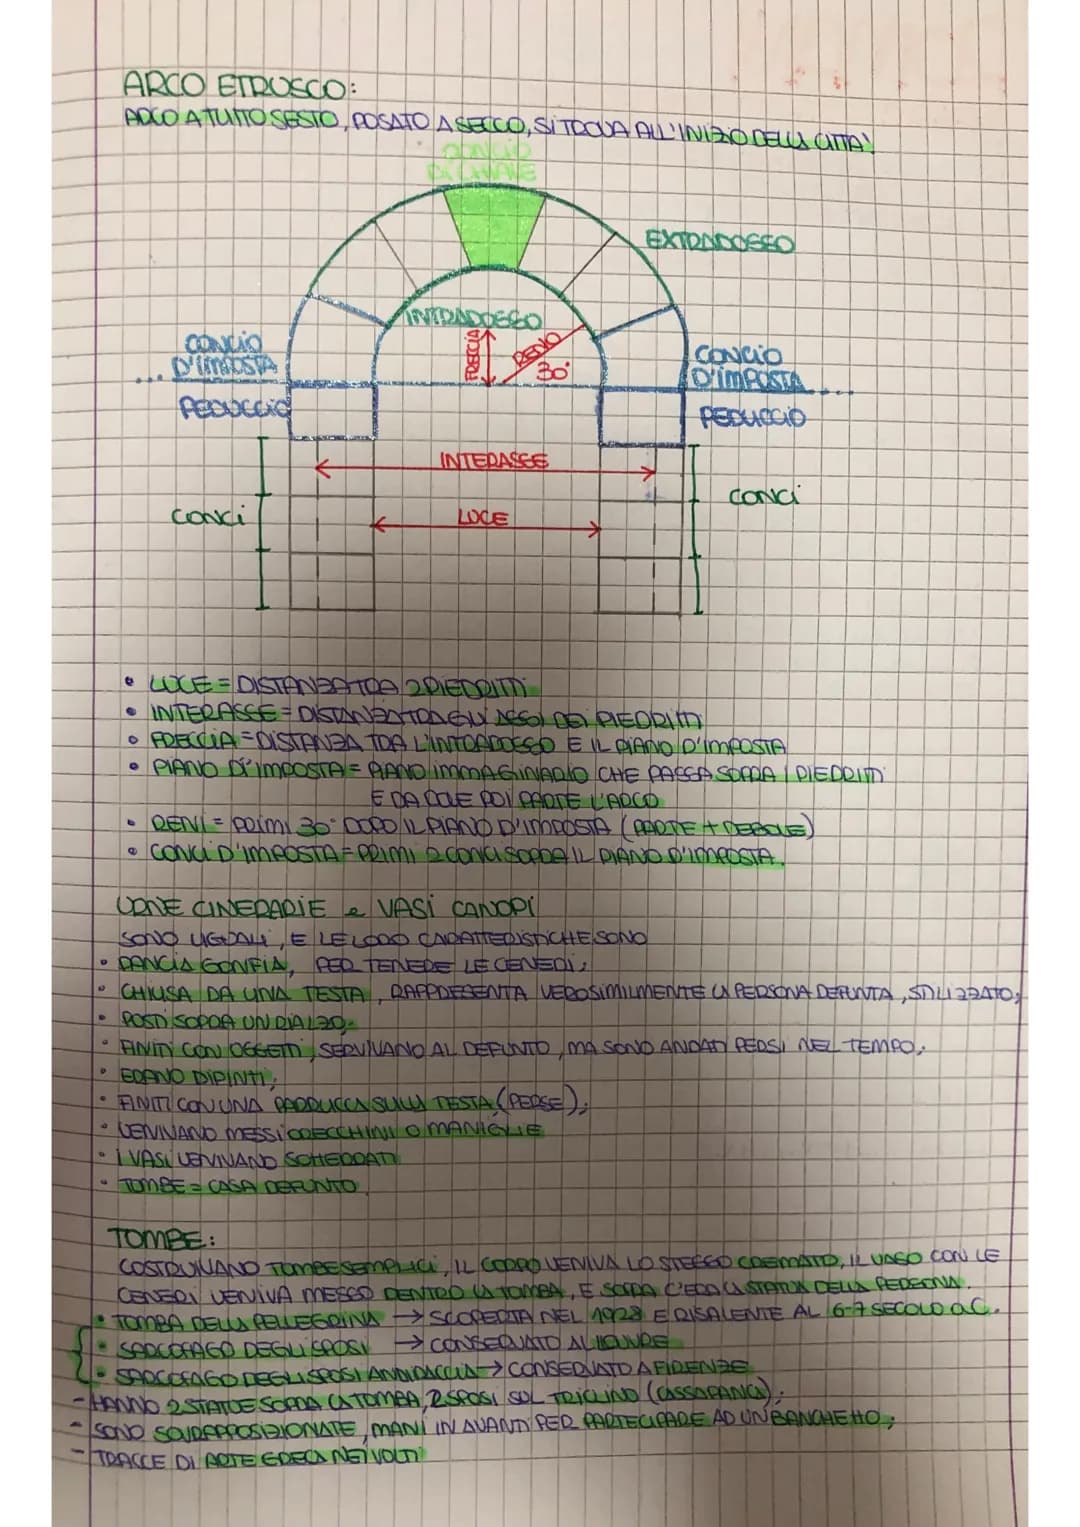 ARCO ETRUSCO:
ARCO A TUTTO SESTO, POSATO A SECCO, SI TROVA ALL'INIZIO DELLA CITTA'.
CONCIO
DI CHIAVE
EXTRADOSSO
INTRADOSSO
FRECCIA
RENO
30°
CONCIO
D'IMPOSTA
PEDUCCIO
CONCIO
D'IMPOSTA
PEDUCCIO
INTERASSE
CONCI
LUCE
CONCI
• LUCE = DISTANZA TRA 2 PIEDRITTI
• INTERASSE = DISTANZA TRA GLI ASSI DEI PIEDRITTI
• FRECCIA = DISTANZA TRA L'INTRADOSSO E IL PIANO D'IMPOSTA
• PIANO DI IMPOSTA = PIANO IMMAGINARIO CHE PASSA SOPRA I PIEDRITTI
E DA DOVE POI PARTE L'ARCO
• RENI = PRIMI 30° DOPO IL PIANO D'IMPOSTA (PARTE + DEBOLE)
• CONCI D'IMPOSTA = PRIMI 2 CONCI SOPRA IL PIANO D'IMPOSTA.
URNE CINERARIE e VASI CANOPI
SONO UGUALI, E LE LORO CARATTERISTICHE SONO
• PANCIA GONFIA, PER TENERE LE CENERI;
• CHIUSA DA UNA TESTA, RAPPRESENTA VEROSIMILMENTE LA PERSONA DEFUNTA, STILIZZATO;
• POSTI SOPRA UN RIALZO.
• FINITI CON OGGETTI, SERVIVANO AL DEFUNTO, MA SONO ANDATI PERSI NEL TEMPO;
• ERANO DIPINTI;
• FINITI CON UNA PARRUCCA SULLA TESTA (PERSE);
• VENIVANO MESSI ORECCHINI O MANIGLIE
• I VASI VENIVANO SOTTERRATI
• TOMBE = CASA DEFUNTO.
TOMBE:
COSTRUIVANO TOMBE SEMPLICI, IL CORPO VENIVA LO STESSO CREMATO, IL VASO CON LE
CENERI VENIVA MESSO DENTRO LA TOMBA, E SOPRA C'ERA LA STATUA DELLA PERSONA.
• TOMBA DELLA PELLEGRINA → SCOPERTA NEL 1928 E RISALENTE AL 6-7 SECOLO a.C.
• SARCOFAGO DEGLI SPOSI → CONSERVATO AL LOUVRE
• SARCOFAGO DEGLI SPOSI ANNIDACCIA → CONSERVATO A FIRENZE
- HANNO 2 STATUE SOPRA LA TOMBA, 2 SPOSI SUL TRICLINO (CASSAPANCA);
- SONO SOVRAPPOSIZIONATE, MANI IN AVANTI PER PARTECIPARE AD UN BANCHETTO;
- TRACCE DI ARTE GRECA NEI VOLTI